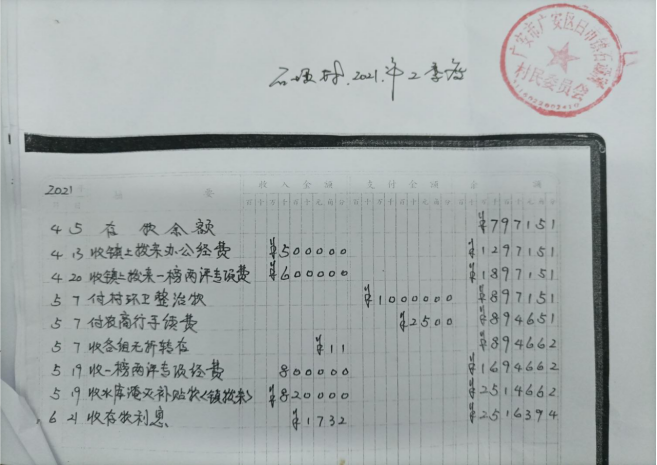 广安市广安区
村民委员会
2021.年2季度
摘 要 收入金额 支付金额 余 额
2021
4 5 存款余额 ¥797151
4 13 收镇上拨来办公经费 ¥500000 ¥1297151
4 20 收镇上拨来一榜两评专项费 ¥600000 ¥1897151
5 7 付村环卫整治款 ¥1000000 ¥897151
5 7 付农商行手续费 ¥2500 ¥894651
5 7 收各组无折转存 ¥11 ¥894662
5 19 收一榜两评专项经费 800000 ¥1694662
5 19 收水库淹没补贴款(镇拨来) ¥820000 ¥2514662
6 21 收存款利息 ¥1732 ¥2516394